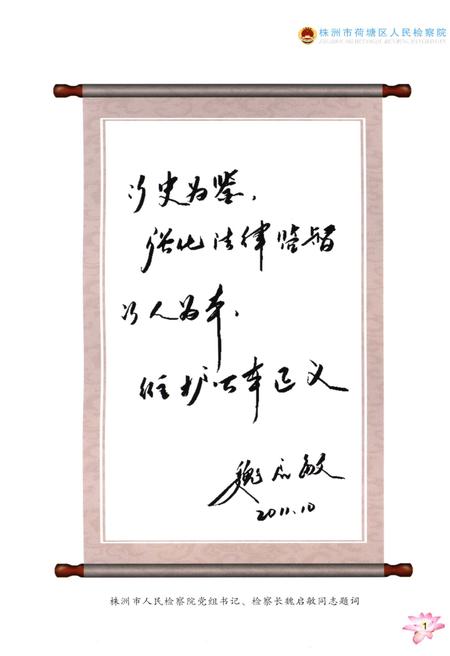 株洲市荷塘区人民检察院
以史为鉴，
强化法律监督
以人为本，
维护公平正义
魏启敏
2011.10
株洲市人民检察院党组书记、检察长魏启敏同志题词
1